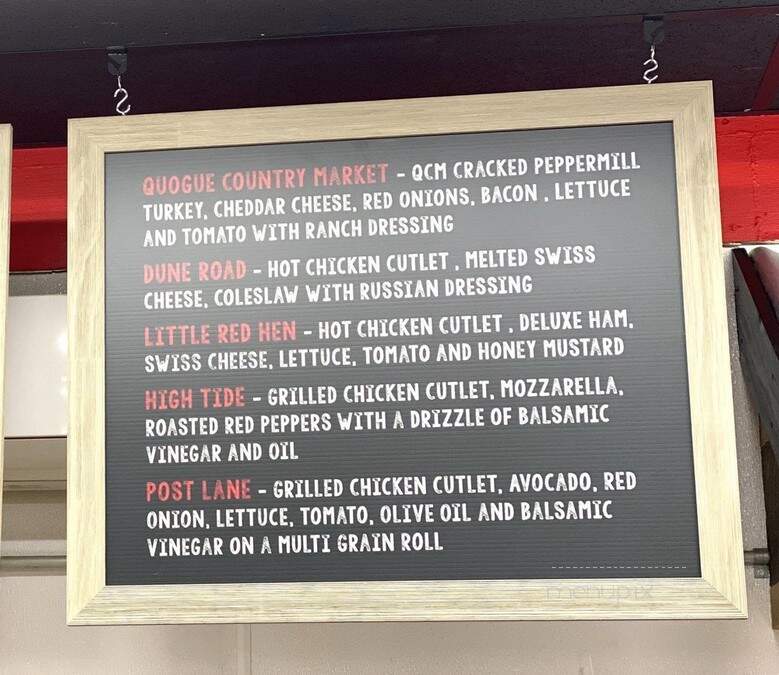 QUOGUE COUNTRY MARKET - QCM CRACKED PEPPERMILL
TURKEY, CHEDDAR CHEESE, RED ONIONS, BACON , LETTUCE
AND TOMATO WITH RANCH DRESSING
DUNE ROAD - HOT CHICKEN CUTLET , MELTED SWISS
CHEESE, COLESLAW WITH RUSSIAN DRESSING
LITTLE RED HEN - HOT CHICKEN CUTLET , DELUXE HAM,
SWISS CHEESE, LETTUCE, TOMATO AND HONEY MUSTARD
HIGH TIDE - GRILLED CHICKEN CUTLET, MOZZARELLA,
ROASTED RED PEPPERS WITH A DRIZZLE OF BALSAMIC
VINEGAR AND OIL
POST LANE - GRILLED CHICKEN CUTLET, AVOCADO, RED
ONION, LETTUCE, TOMATO, OLIVE OIL AND BALSAMIC
VINEGAR ON A MULTI GRAIN ROLL
menupix